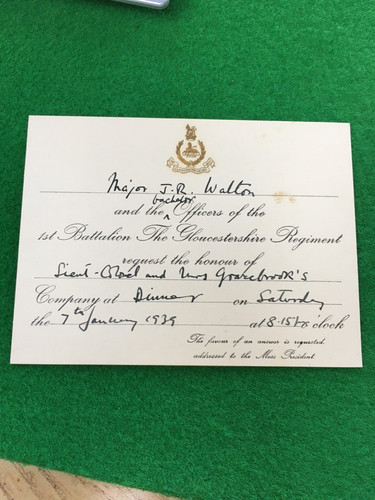 Major J.R. Walton
bachelor
and the ^ Officers of the
1st Battalion The Gloucestershire Regiment
request the honour of
Lieut-Col and Mrs Grazebrook's
Company at Dinner on Saturday
the 7th January 1939 at 8.15 o'clock
The favour of an answer is requested
addressed to the Mess President.